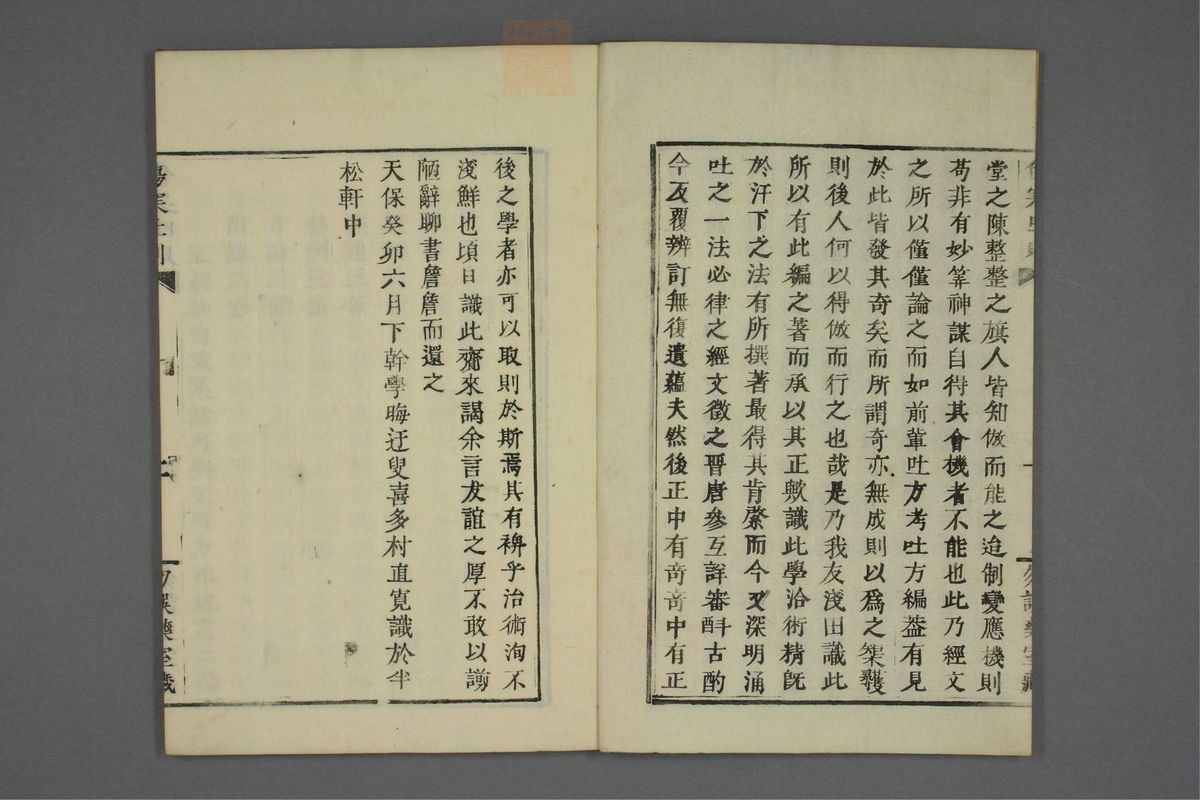 堂之陳整整之旗人皆知倣而能之迨制變應機則
苟非有妙筭神謀自得其會機者不能也此乃經文
之所以僅僅論之而如前輩吐方考吐方編葢有見
於此皆發其奇矣而所謂奇亦無成則以爲之榘矱
則後人何以得倣而行之也哉是乃我友淺田識此
所以有此編之著而承以其正歟識此學洽術精旣
於汗下之法有所撰著最得其肯綮而今又深明涌
吐之一法必律之經文徵之晋唐參互詳審斟古酌
今反覆辨訂無復遺蘊夫然後正中有奇奇中有正
後之學者亦可以取則於斯焉其有裨乎治術洵不
淺鮮也頃日識此齎來謁余言友誼之厚不敢以謭
陋辭聊書詹詹而還之
天保癸卯六月下幹學晦迂叟喜多村直寬識於半
松軒中
勿誤藥室藏